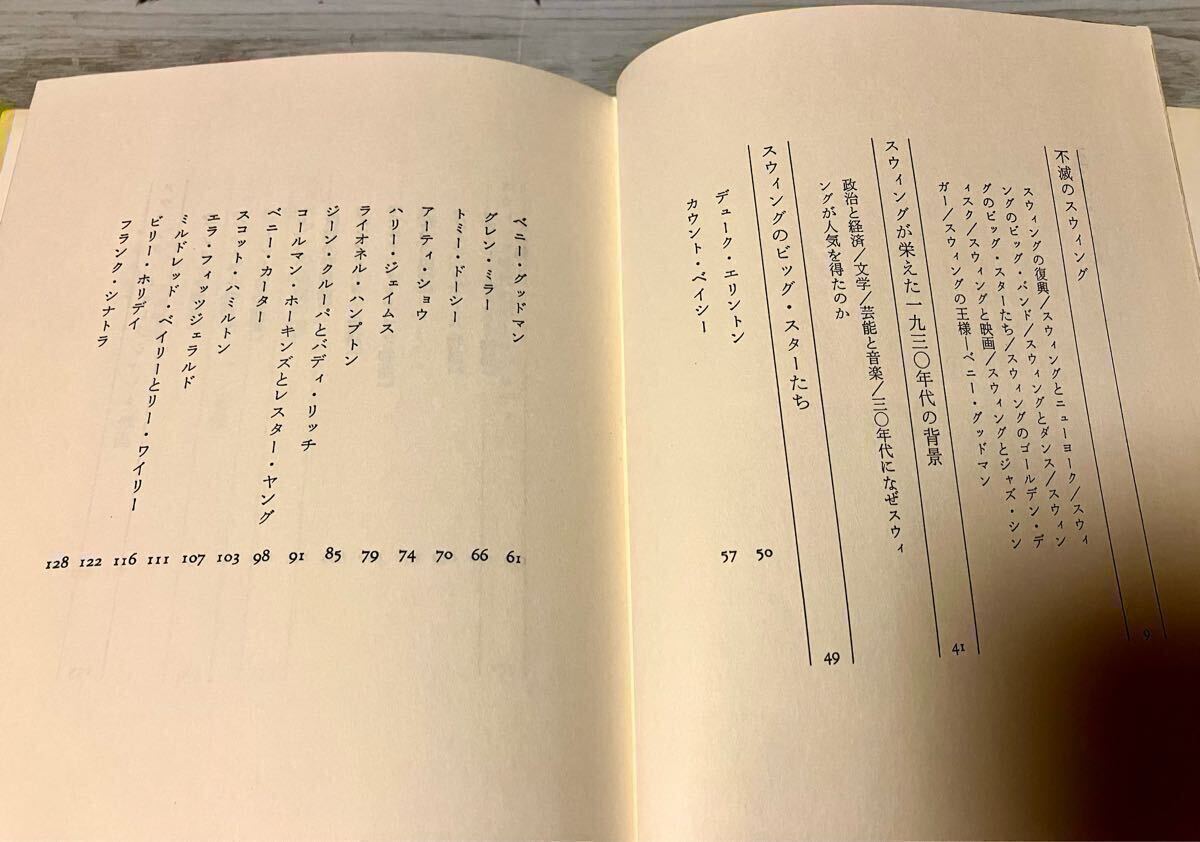 不滅のスウィング 9
スウィングの復興/スウィングとニューヨーク/スウィ
ングのビッグ・バンド/スウィングとダンス/スウィン
グのビッグ・スターたち/スウィングのゴールデン・デ
ィスク/スウィングと映画/スウィングとジャズ・シン
ガー/スウィングの王様―ベニー・グッドマン
スウィングが栄えた一九三〇年代の背景 41
政治と経済/文学/芸能と音楽/三〇年代になぜスウィ
ングが人気を得たのか
スウィングのビッグ・スターたち 49
デューク・エリントン 50
カウント・ベイシー 57
ベニー・グッドマン 61
グレン・ミラー 66
トミー・ドーシー 70
アーティ・ショウ 74
ハリー・ジェイムス 79
ライオネル・ハンプトン 85
ジーン・クルーパとバディ・リッチ 91
コールマン・ホーキンズとレスター・ヤング 98
ベニー・カーター 103
スコット・ハミルトン 107
エラ・フィッツジェラルド 111
ミルドレッド・ベイリーとリー・ワイリー 116
ビリー・ホリデイ 122
フランク・シナトラ 128